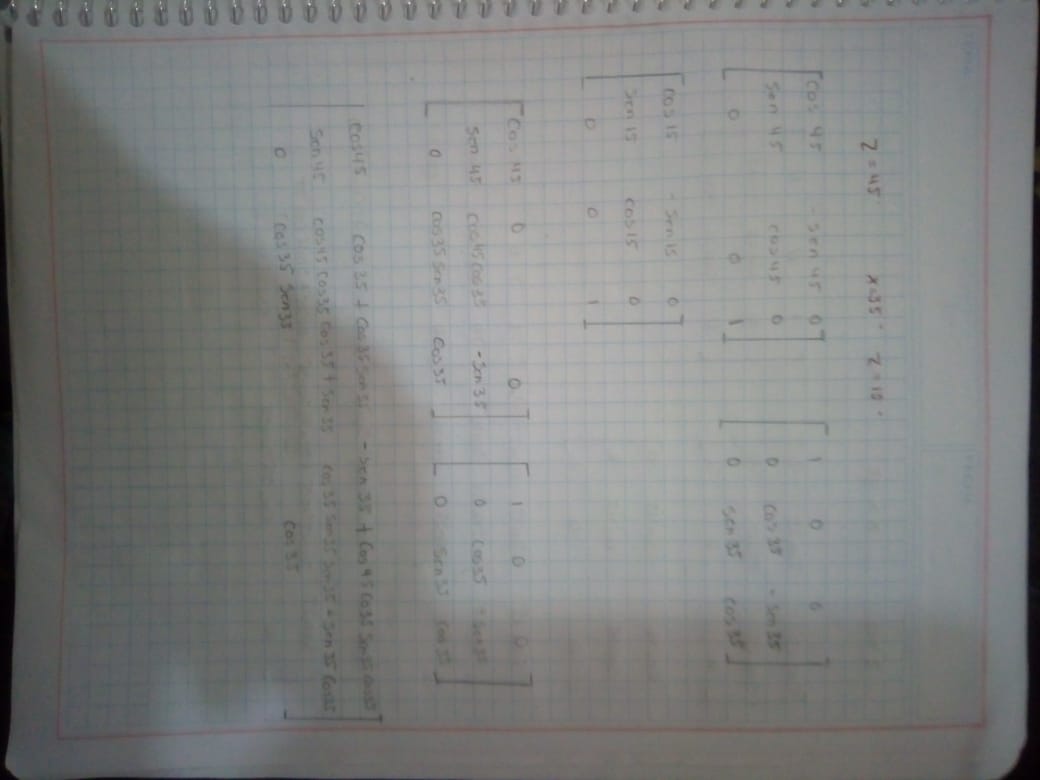 Z = 45 x=35° Z = 15°
cos 45 - sen 45 0 1 0 0
sen 45 cos 45 0 0 cos 35 - sen 35
0 0 1 0 sen 35 cos 35
cos 15 - sen 15 0
sen 15 cos 15 0
0 0 1
Cos 45 0 0 1 0 0
sen 45 cos 45 cos 35 - sen 35 0 cos 35 - sen 35
0 cos 35 sen 35 cos 35 0 sen 35 cos 35
cos 45 cos 35 + cos 35 sen 35 - sen 35 + cos 45 cos 35 sen 35 cos 35
sen 45 cos 45 cos 35 cos 35 + sen 35 cos 35 sen 35 sen 35 - sen 35 cos 35
0 cos 35 sen 35 cos 35